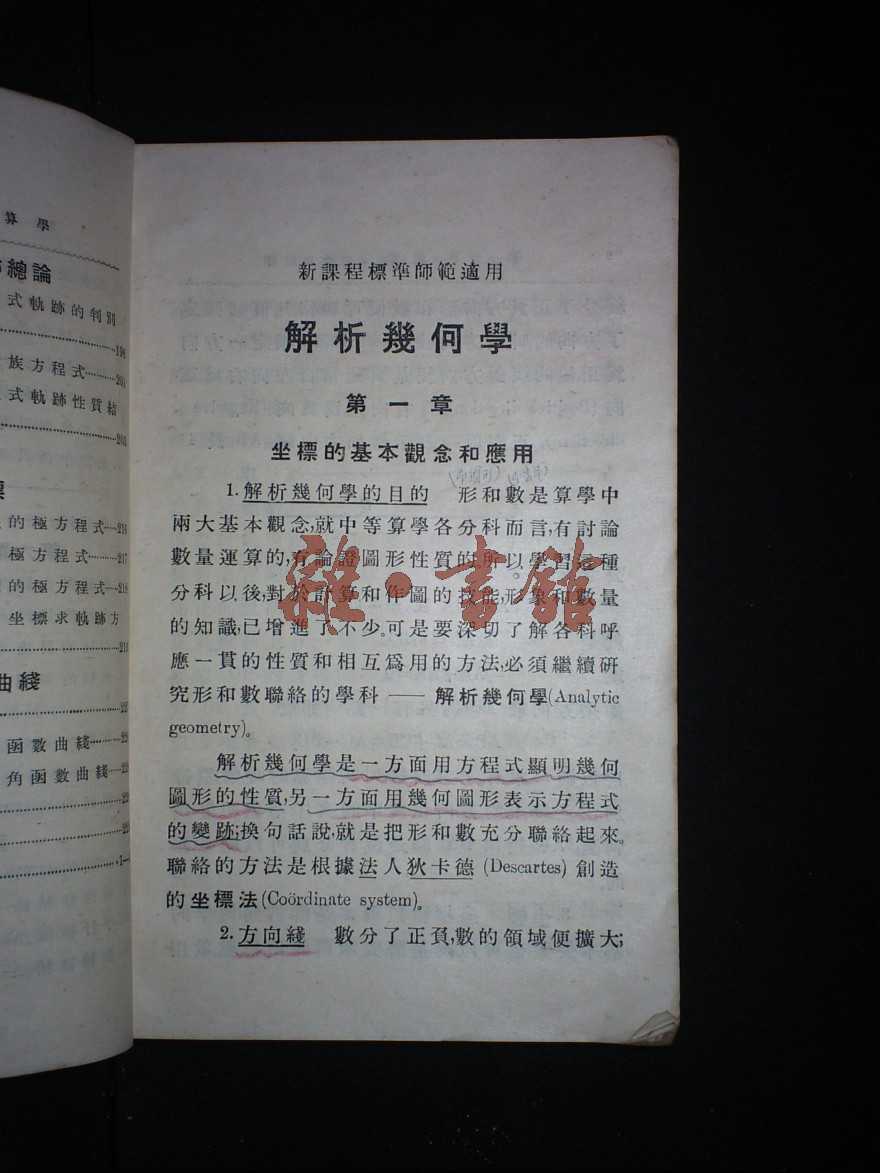 算學
總論
式軌跡的判別
198
族方程式
201
式軌跡性質結
203
的極方程式 216
極方程式 217
的極方程式 218
坐標求軌跡方
曲綫
函數曲綫
角函數曲綫
新課程標準師範適用
解析幾何學
第一章
坐標的基本觀念和應用
1. 解析幾何學的目的 形和數是算學中
兩大基本觀念,就中等算學各分科而言,有討論
數量運算的,有論證圖形性質的。所以學習這種
分科以後,對於計算和作圖的技能,形象和數量
的知識,已增進了不少。可是要深切了解各科呼
應一貫的性質和相互爲用的方法,必須繼續研
究形和數聯絡的學科——解析幾何學(Analytic
geometry)。
解析幾何學是一方面用方程式顯明幾何
圖形的性質,另一方面用幾何圖形表示方程式
的變跡;換句話說,就是把形和數充分聯絡起來。
聯絡的方法是根據法人狄卡德 (Descartes) 創造
的坐標法(Coördinate system)。
2. 方向綫 數分了正負,數的領域便擴大;
雜·書館